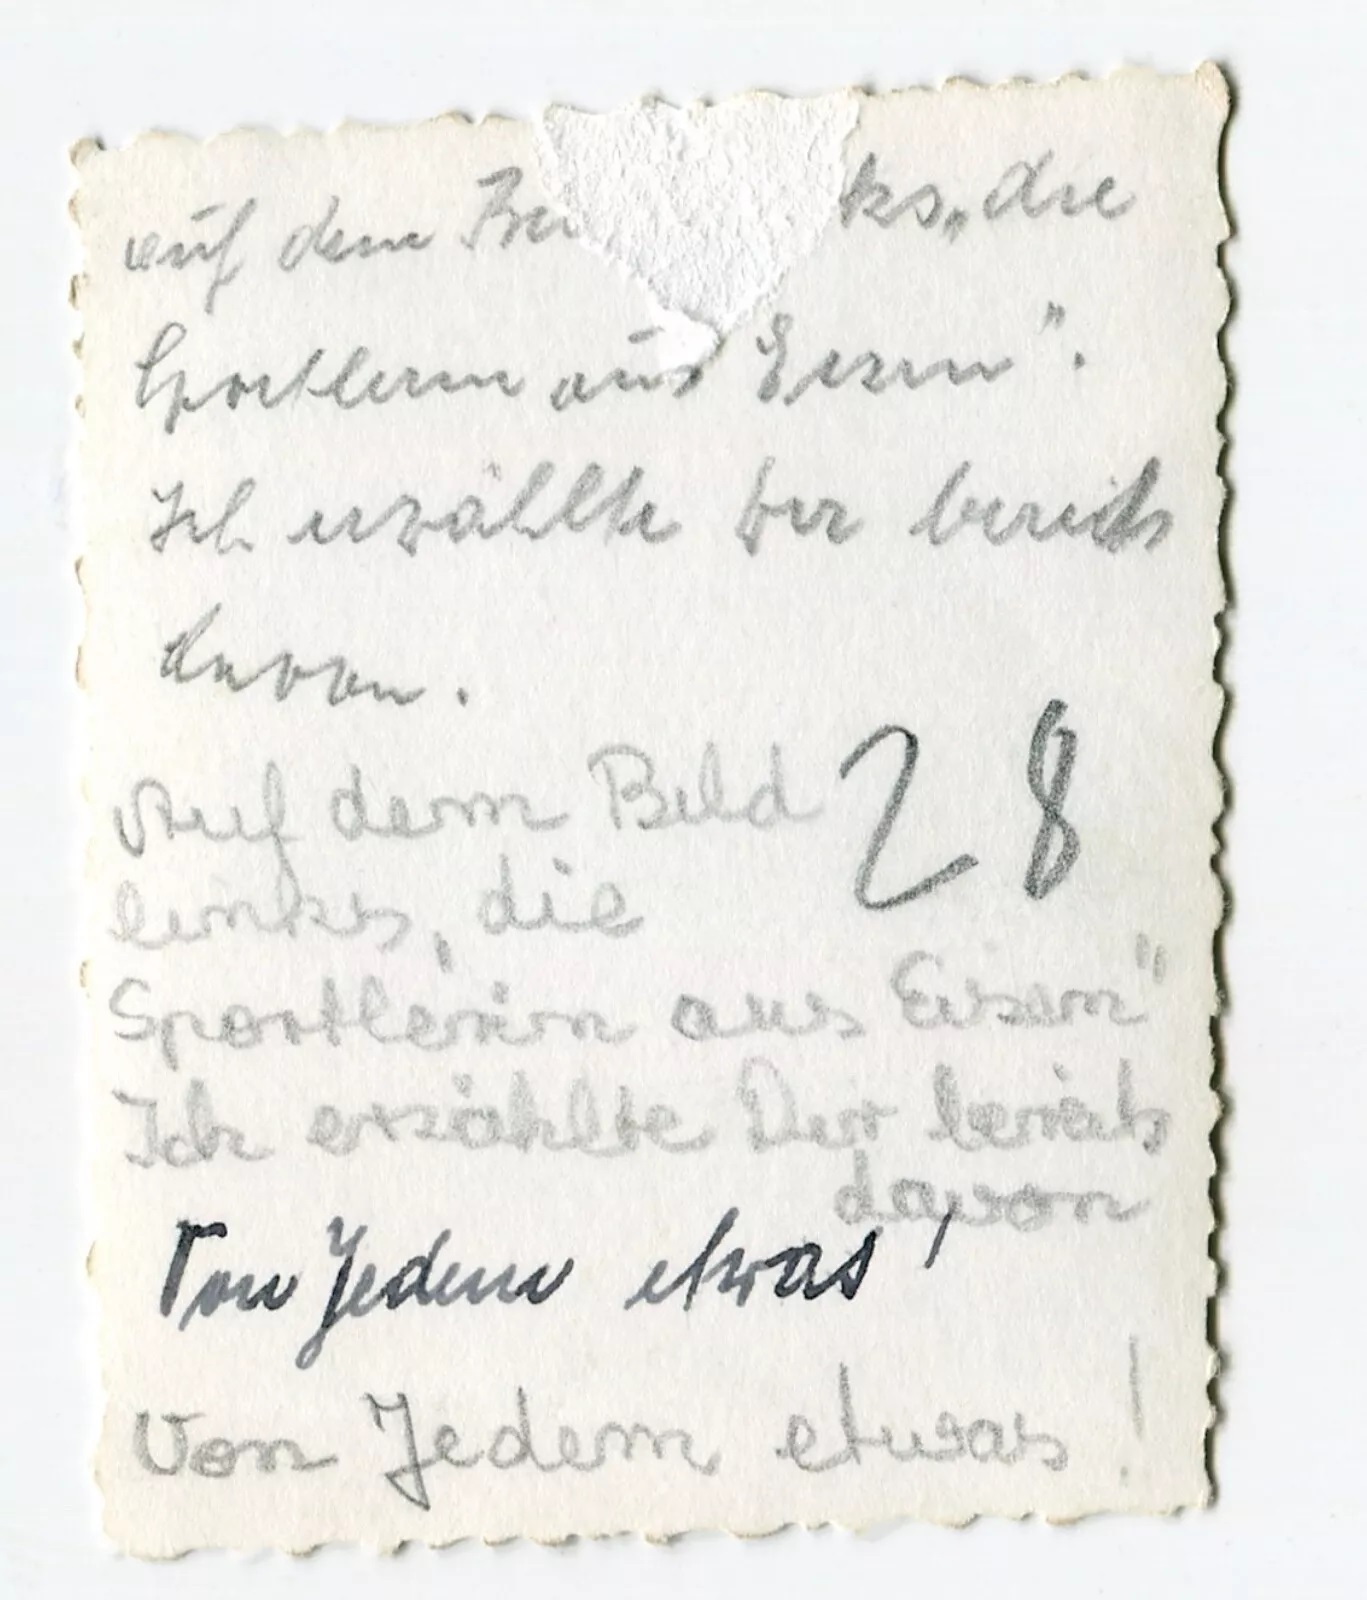 auf dem ks „die
Sportlerin aus Eisen".
Ich erzählte Dir bereits
davon.
Auf dem Bild
links, die
28
Sportlerin aus Eisen"
Ich erzählte Dir bereits
davon
Von Jedem etwas!
Von Jedem etwas!